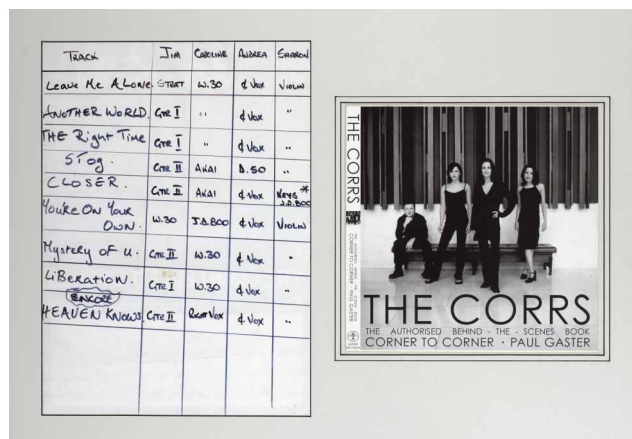 TRACK JIM CAROLINE ANDREA SHARON
Leave Me Alone. STRAT W.30 ¢ Vox VIOLIN
ANOTHER WORLD. GTR I " ¢ Vox "
THE Right Time GTR I " ¢ Vox "
STOG. GTR II AKAI D.50 "
CLOSER. GTR II AKAI ¢ Vox KEYS *
J.D.800
You're On Your
OWN. W.30 J.D.800 ¢ Vox VIOLIN
Mystery of U. GTR II W.30 ¢ Vox "
LIBERATION. GTR I W.30 ¢ Vox "
ENCORE
HEAVEN KNOWS. GTR II Vox ¢ Vox "
THE CORRS
CORNER TO CORNER · PAUL GASTER
THE CORRS
THE AUTHORISED BEHIND - THE - SCENES BOOK
CORNER TO CORNER · PAUL GASTER